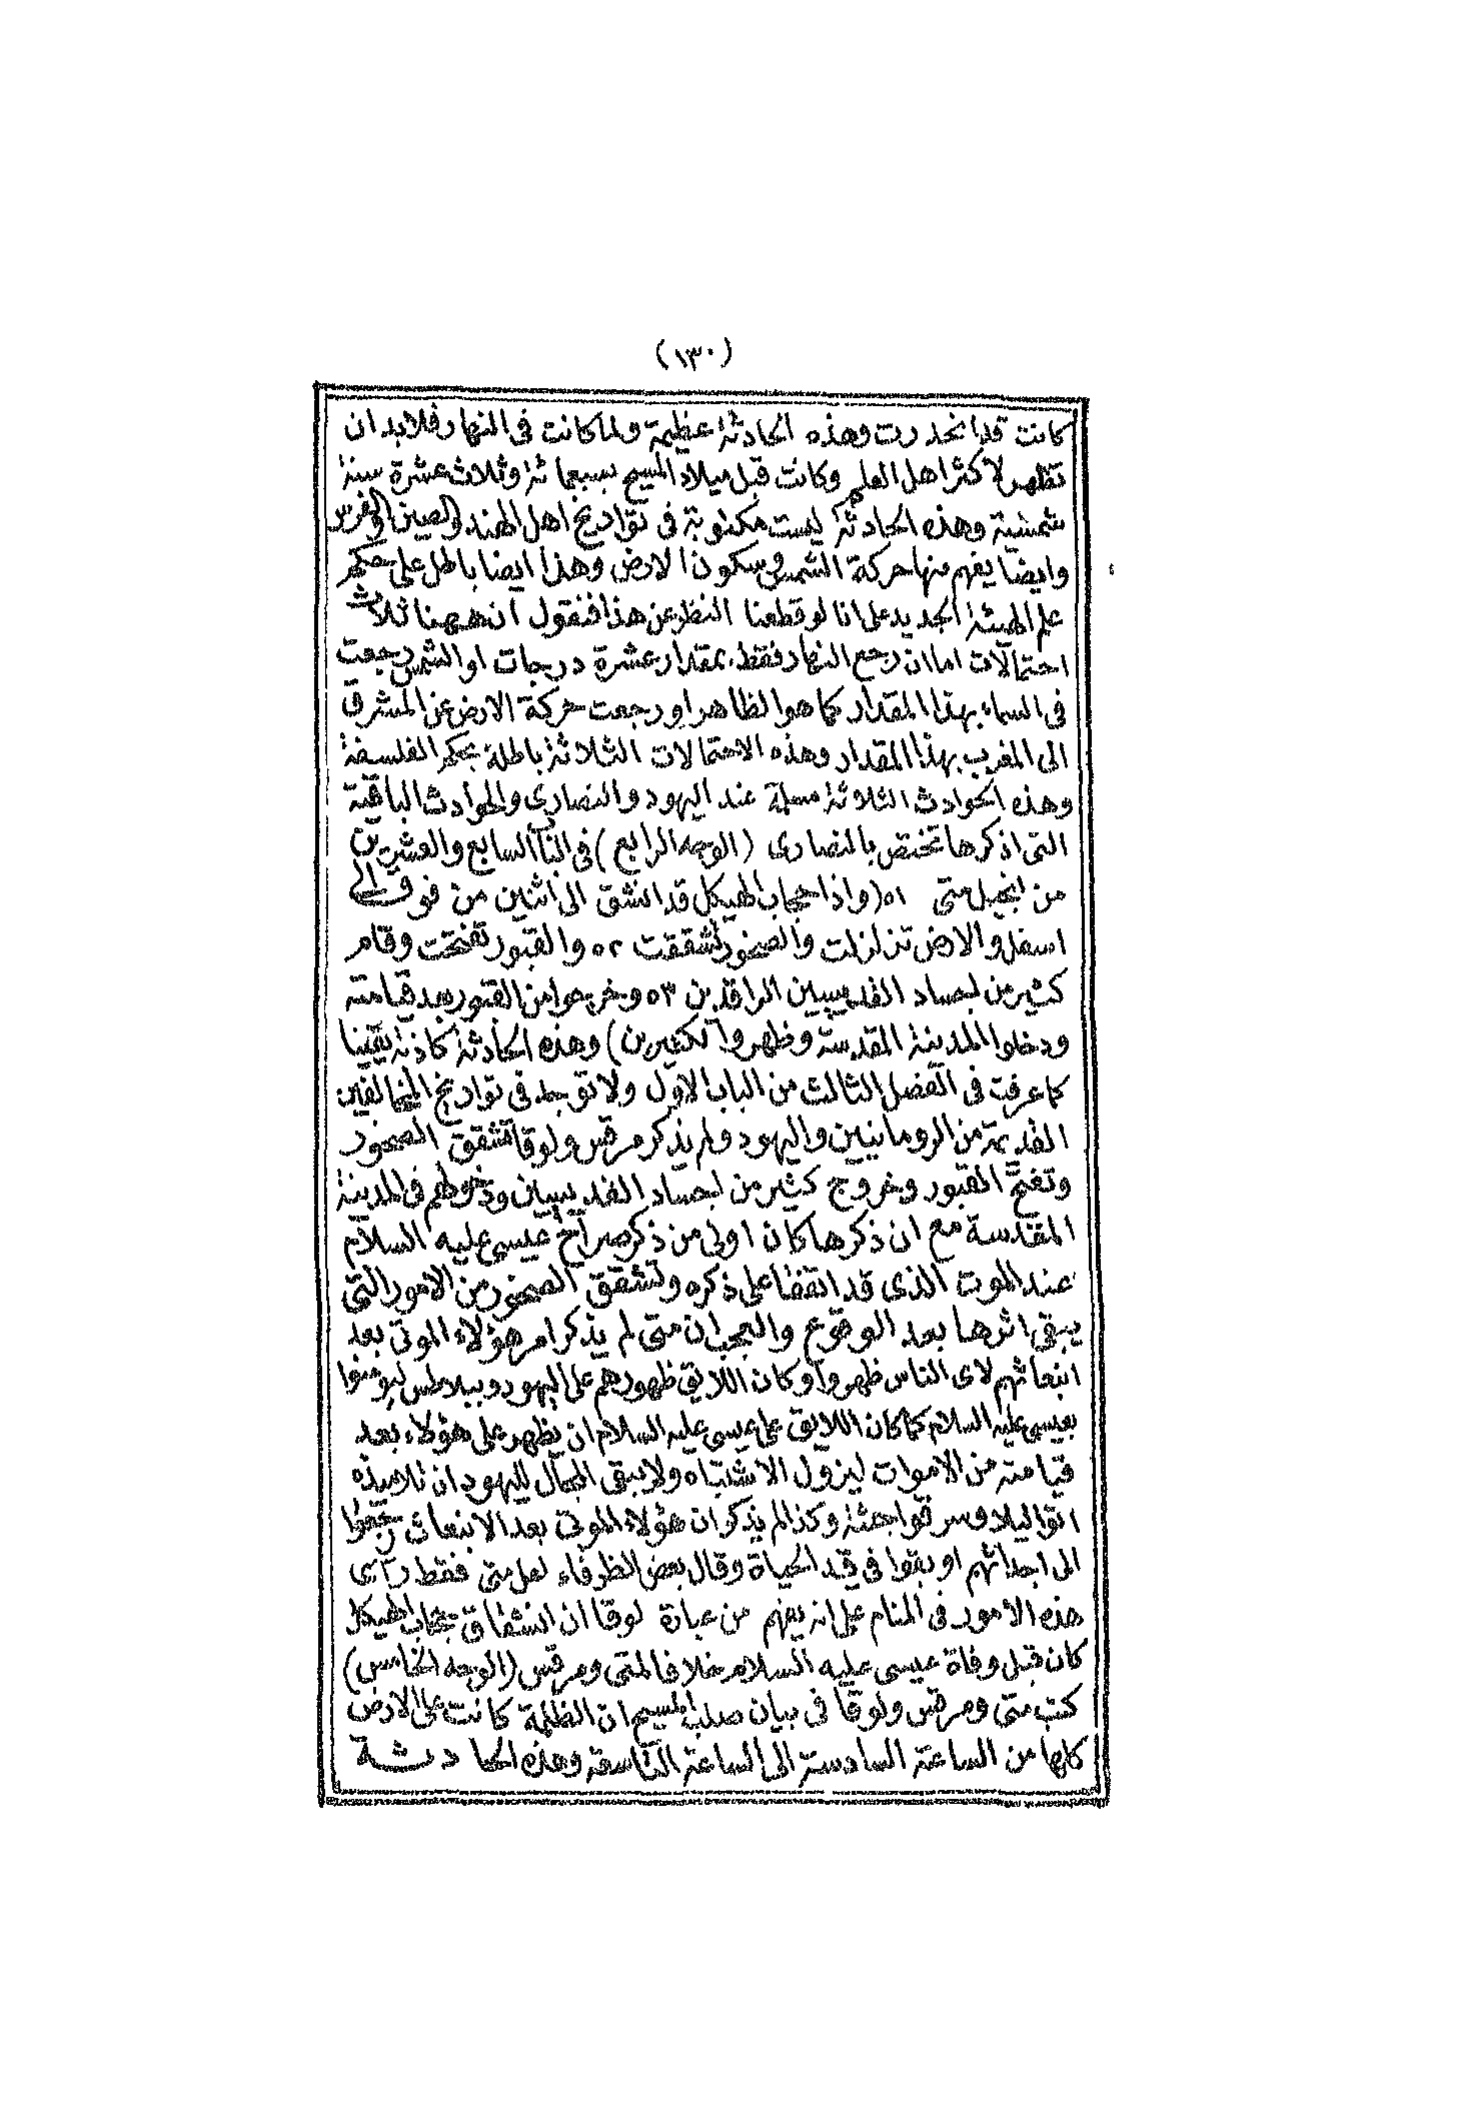 (١٣٠)
كانت قد انحدرت وهذه الحادثة عظيمة ولما كانت فى النهار فلابد ان
تظهر لاكثر اهل العلم وكانت قبل ميلاد المسيح بسبعمائة وثلاث عشرة سنة
شمسية وهذه الحادثة ليست مكتوبة فى تواريخ اهل الهند والصين والفرس
وايضا يفهم منها حركة الشمس وسكون الارض وهذا ايضا باطل على حكم
علم الهيئة الجديد على انا لو قطعنا النظر عن هذا فنقول ان ههنا ثلاث
احتمالات اما ان رجع النهار فقط بمقدار عشرة درجات او الشمس رجعت
فى السماء بهذا المقدار كما هو الظاهر او رجعت حركة الارض عن المشرق
الى المغرب بهذا المقدار وهذه الاحتمالات الثلاثة باطلة بحكم الفلسفة
وهذه الحوادث الثلاثة مسلمة عند اليهود والنصارى والحوادث الباقية
التى اذكرها تختص بالنصارى (الوجه الرابع) فى الباب السابع والعشرين
من انجيل متى ٥١ (واذا حجاب الهيكل قد انشق الى اثنين من فوق الى
اسفل والارض تزلزلت والصخور تشققت ٥٢ والقبور تفتحت وقام
كثير من اجساد القديسين الراقدين ٥٣ وخرجوا من القبور بعد قيامته
ودخلوا المدينة المقدسة وظهروا لكثيرين) وهذه الحادثة كاذبة يقينا
كما عرفت فى الفصل الثالث من الباب الاول ولا توجد فى تواريخ المخالفين
القديمة من الرومانيين واليهود ولم يذكر مرقس ولوقا تشقق الصخور
وتفتح القبور وخروج كثير من اجساد القديسين ودخولهم فى المدينة
المقدسة مع ان ذكرها كان اولى من ذكر صراخ عيسى عليه السلام
عند الموت الذى قد اتفقا على ذكره وتشقق الصخور من الامور التى
يبقى اثرها بعد الوقوع والعجب ان متى لم يذكر امر هؤلاء الموتى بعد
انبعاثهم لاى الناس ظهروا وكان اللايق ظهورهم على اليهود وبيلاطس ليؤمنوا
بعيسى عليه السلام كما كان اللايق على عيسى عليه السلام ان يظهر على هؤلاء بعد
قيامته من الاموات ليزول الاشتباه ولا يبقى المجال لليهود ان تلاميذه
اتوا ليلا وسرقوا جثته وكذا لم يذكر ان هؤلاء الموتى بعد الانبعاث رجعوا
الى اجداثهم او بقوا فى قيد الحياة وقال بعض الظرفاء لعل متى فقط رآى
هذه الامور فى المنام على انه يفهم من عبارة لوقا ان انشقاق حجاب الهيكل
كان قبل وفاة عيسى عليه السلام خلافا لمتى ومرقس (الوجه الخامس)
كتب متى ومرقس ولوقا فى بيان صلب المسيح ان الظلمة كانت على الارض
كلها من الساعة السادسة الى الساعة التاسعة وهذه الحادثة